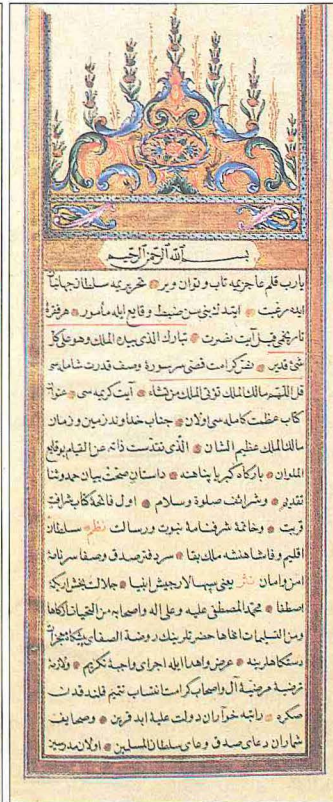 بسم الله الرحمن الرحيم
يارب قلم عاجزيمه تاب وتوان وير تحريريمه سلطان جهانبان
ايده رغبت ابتدا بنى سن ضبط وقايع ايله مأمور هر فقرۀ
تاريخى آيت نصرت تبارك الذى بيده الملك وهو على كل
شئ قدير وصف قدرت شامله سى
قل اللهم مالك الملك تؤتى الملك من تشاء آيت كريمه سى عنوان
كتاب عظمت كامله سى اولان جناب خداوند زمين وزمان
مالك الملك عظيم الشان الذى تقدست ذاته عن القيام بوقايع
الملوان باركاه كبريا پناهنه داستان صحت بيان حمد وثنا
تقديم وشرائف صلوة وسلام اول فاتحۀ كتاب شرافت
قربت وخاتمۀ شرفنامۀ نبوت ورسالت نظم سلطان
اقليم وفا شاهنشه ملك بقا سر دفتر صدق وصفا سرنامۀ
امن وامان نثر يعنى سپهسالار جيش انبيا جلالت بخش اريكۀ
اصطفا محمد المصطفى عليه وعلى اله واصحابه من التحيات ازكاها
ومن التسليمات انماها حضرتلرينك روضۀ الصفاى
دستكاهلرينه عرض واهدا ايله اجراى واجبۀ تكريم
ترضيۀ مرضيۀ آل واصحاب كرامت انتساب تتميم قلندقدن
صكره راتبه خوآران دولت عليۀ ابد قرين وصحايف
شماران دعاى صدق وعاى سلطان المسلمين اولان مدرسين